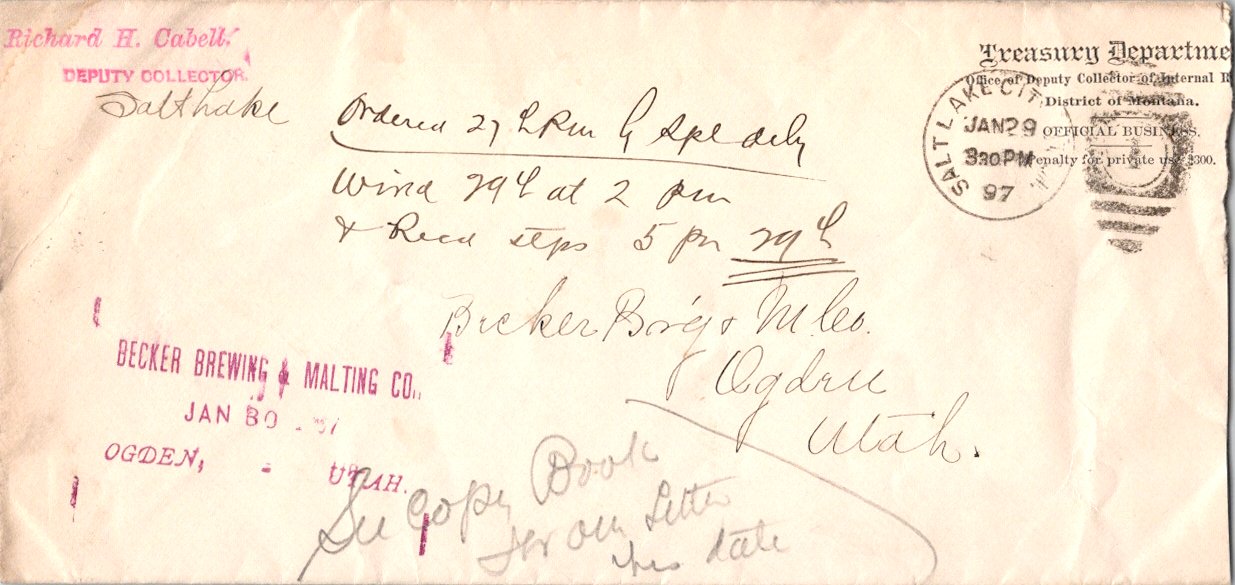 Richard H. Cabell.
DEPUTY COLLECTOR.
Salt Lake
Treasury Departme
Office of Deputy Collector of Internal R
District of Montana.
OFFICIAL BUSINESS.
Penalty for private use $300.
SALT LAKE CITY
JAN 29
330 PM
97
1
Ordered 29 by Spl dely
Wired 29th at 2 pm
& Recd stps 5 pm 29th
Becker Br'g & M. Co.
Ogden
Utah.
BECKER BREWING & MALTING CO.,
JAN 30 97
OGDEN, - UTAH.
See Copy Book
for our Letter
this date